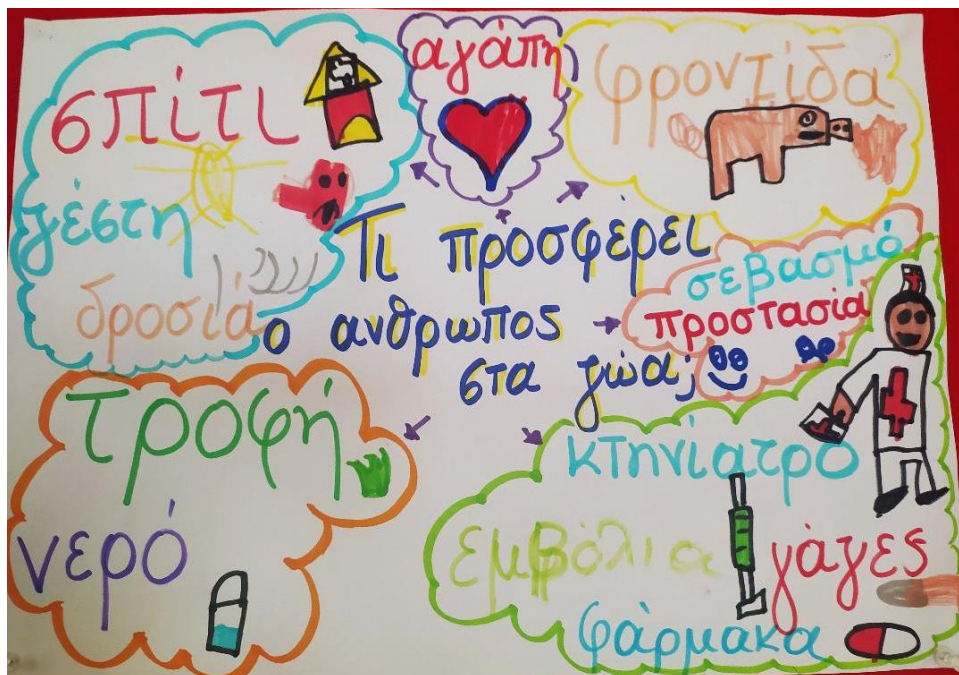 σπίτι
ζέστη
δροσιά
αγάπη
φροντίδα
Τι προσφέρει
ο άνθρωπος
στα ζώα;
σεβασμό
προστασία
τροφή
νερό
κτηνίατρο
εμβόλια
γάζες
φάρμακα